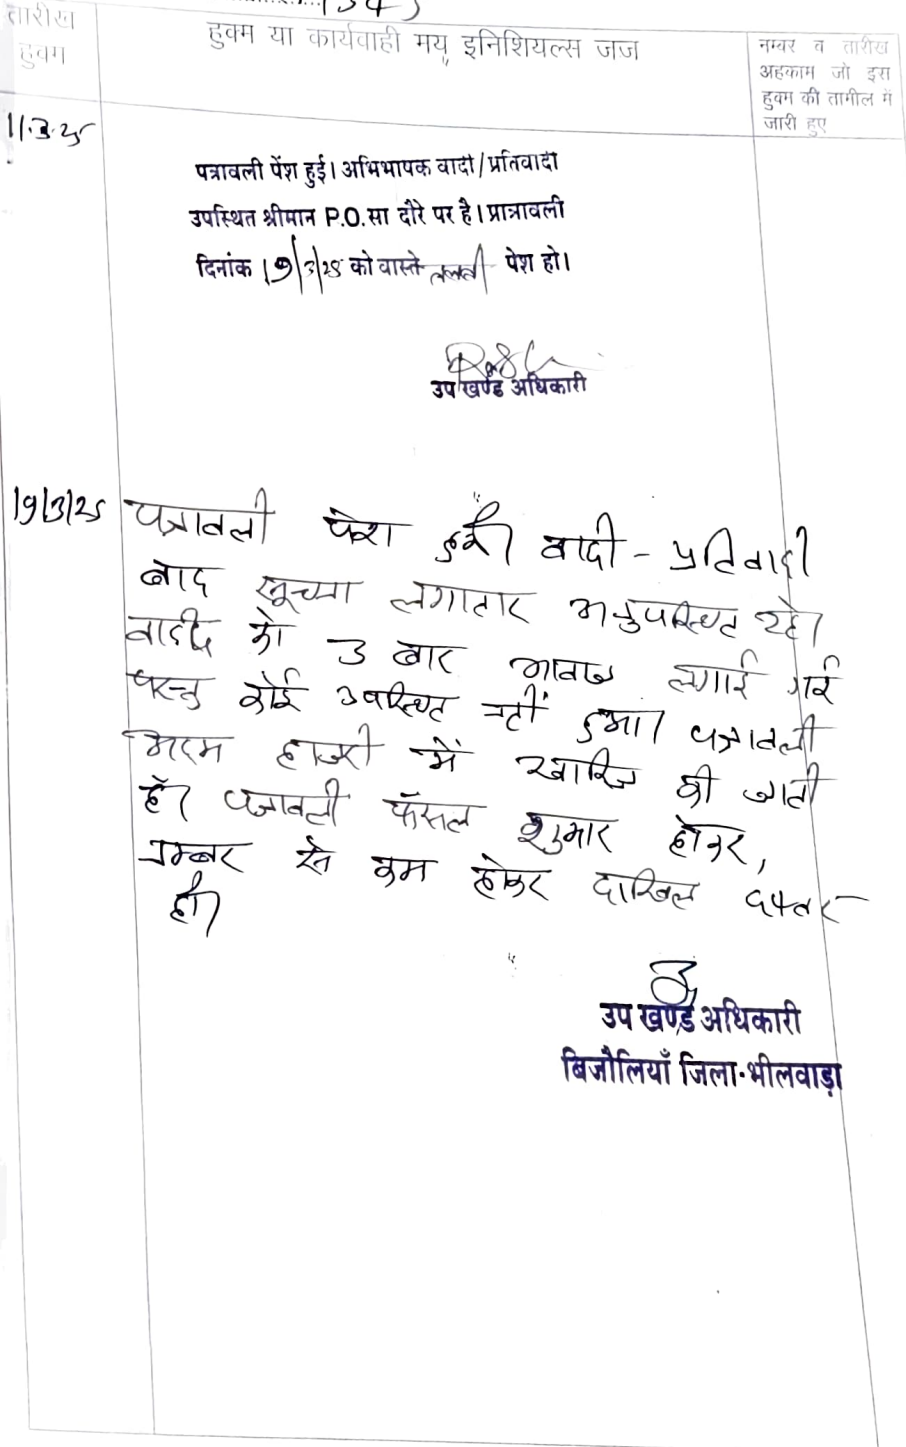 तारीख
हुक्म
हुक्म या कार्यवाही मय इनिशियल्स जज
नम्बर व तारीख
अहकाम जो इस
हुक्म की तामील में
जारी हुए
11.3.25
पत्रावली पेंश हुई। अभिभापक वादी/प्रतिवादी
उपस्थित श्रीमान P.O.सा दौरे पर है। प्रात्रावली
दिनांक 19/3/25 को वास्ते तलबी पेश हो।
उप खण्ड अधिकारी
19/3/25
पत्रावली पेश हुई। वादी - प्रतिवादी
बाद सूचना लगातार अनुपस्थित रहे।
वादी को 3 बार आवाज लगाई गई
परन्तु कोई उपस्थित नहीं हुआ। पत्रावली
अदम हाजरी में खारिज की जाती
है। पत्रावली फैसल शुमार होकर,
नम्बर से कम होकर दाखिल दफ्तर
हो।
उप खण्ड अधिकारी
बिजौलियाँ जिला-भीलवाड़ा